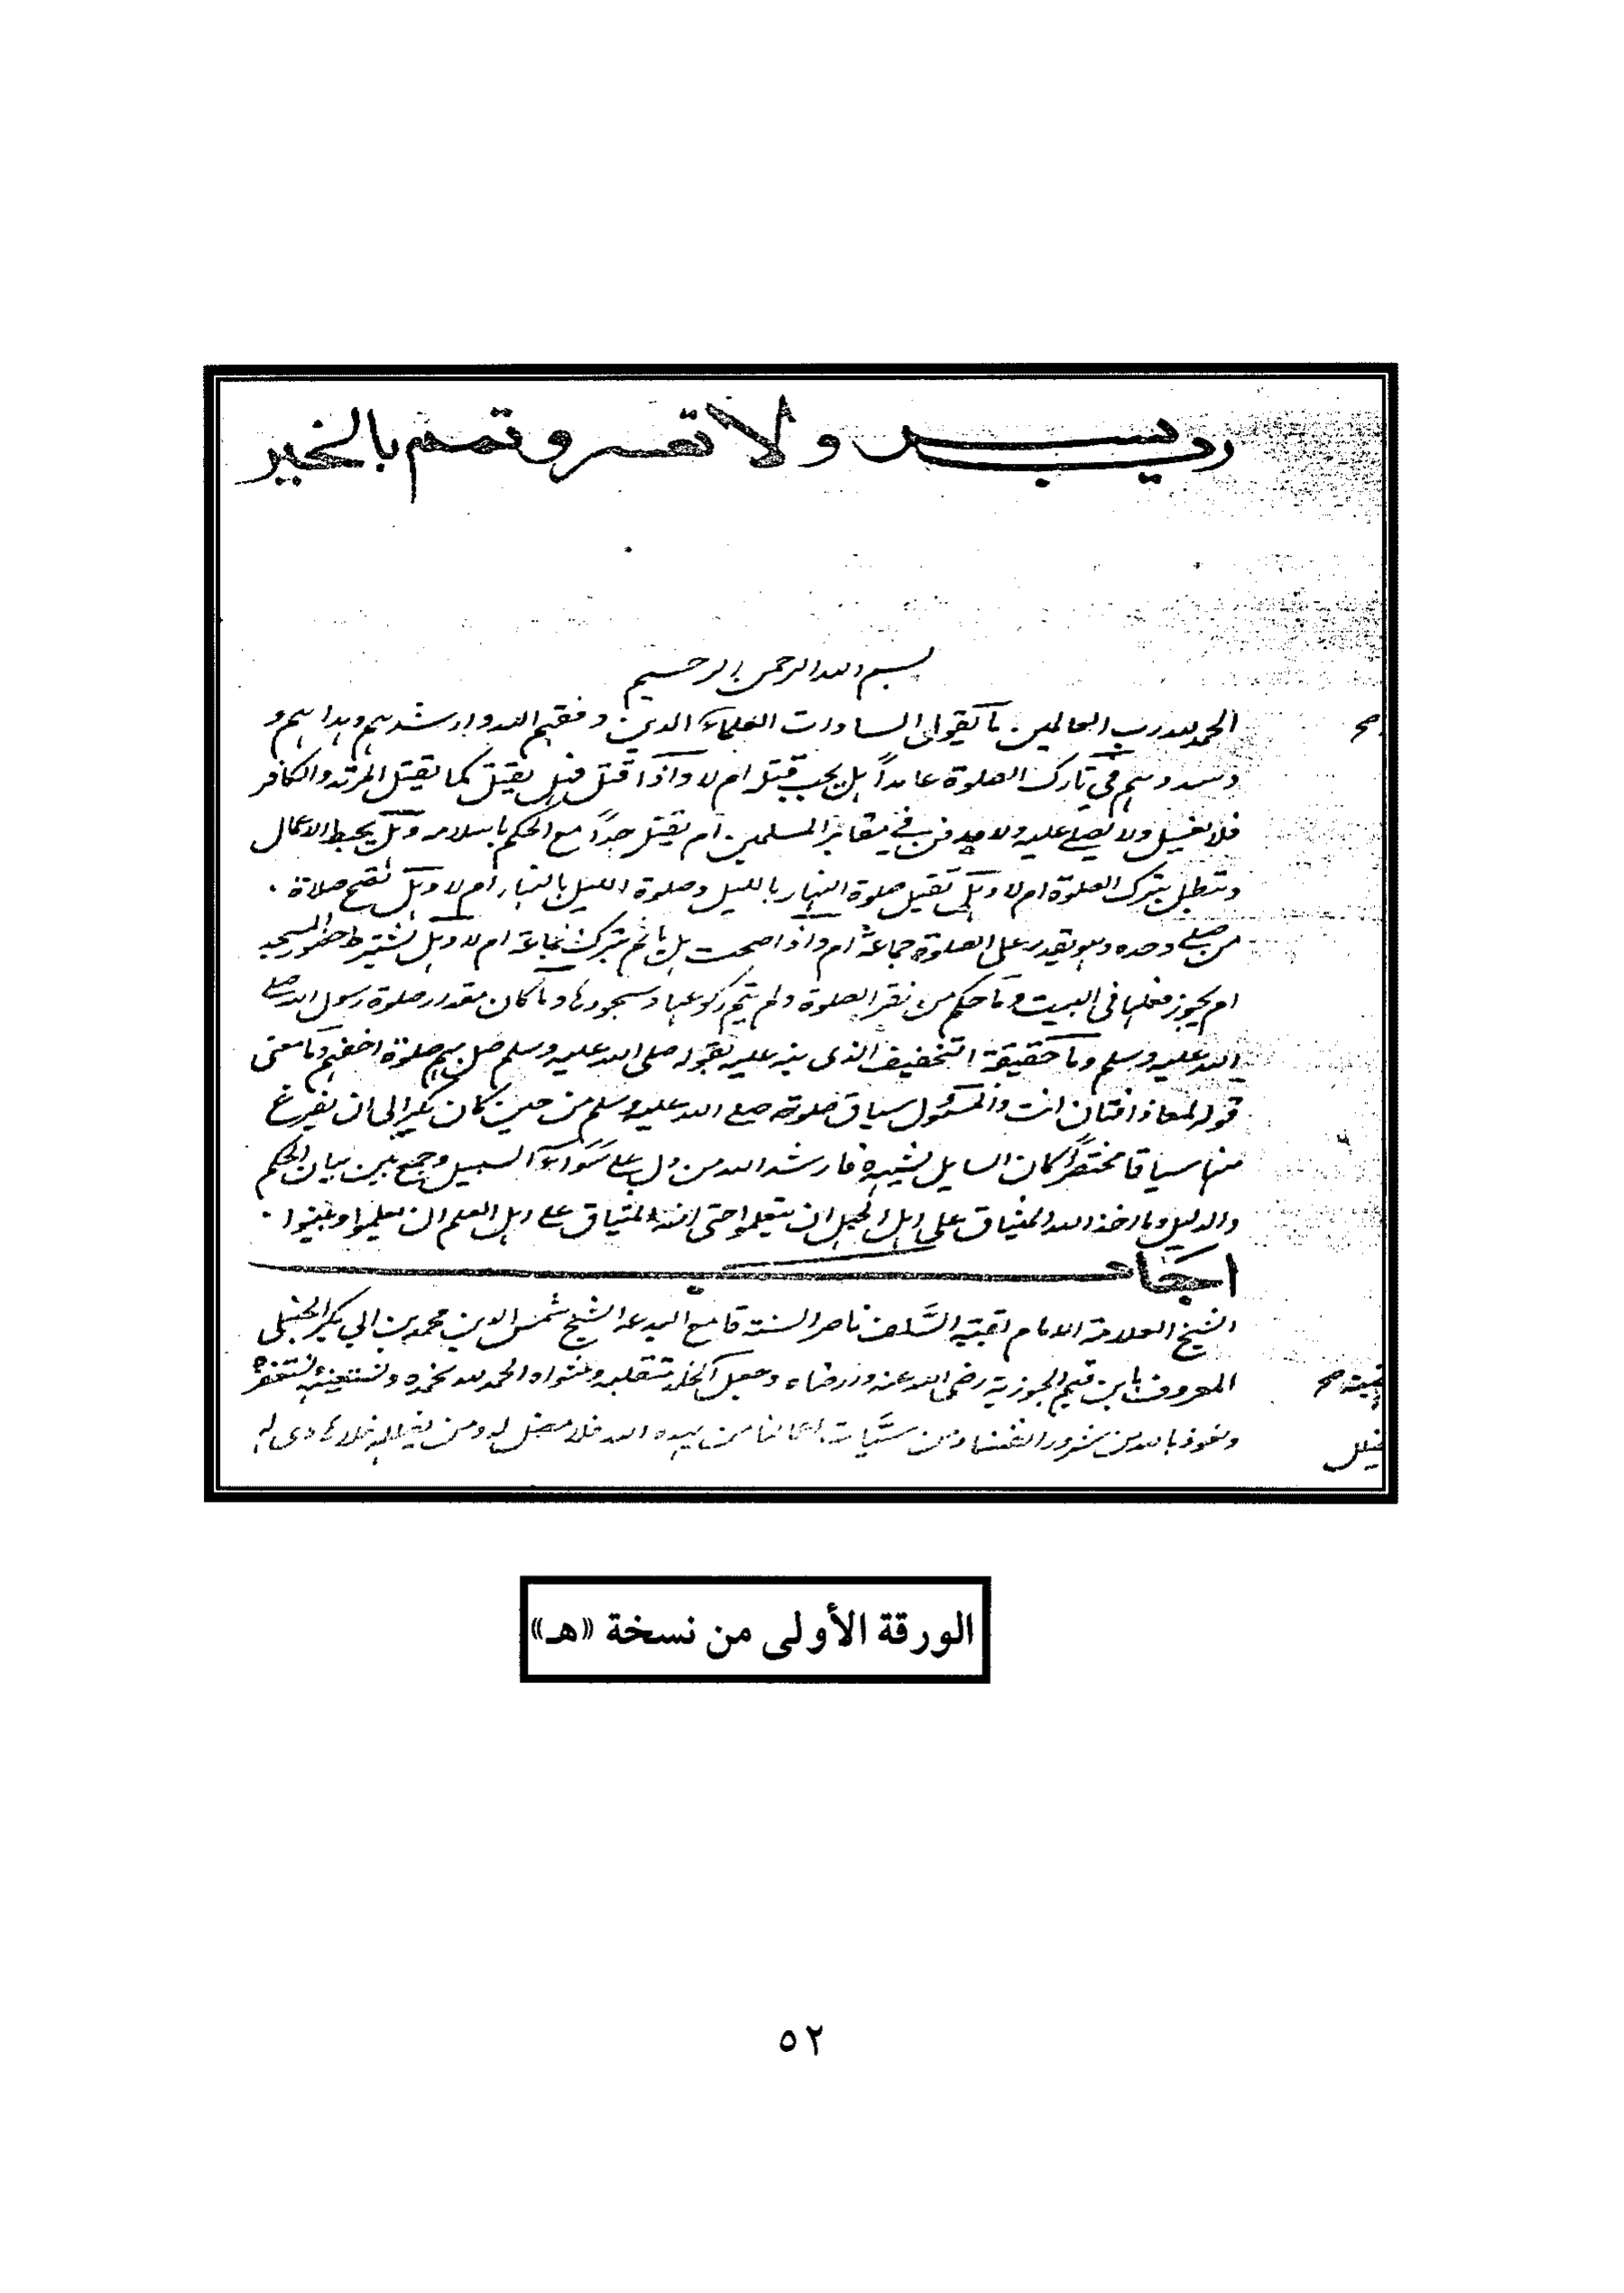 رب يسر ولا تعسر وتمم بالخير
بسم الله الرحمن الرحيم
الحمد لله رب العالمين ما يقول السادات العلماء الذين وفقهم الله وارشدهم وهداهم و
وسددهم في تارك الصلوة عامداً هل يجب قتله ام لا واذا قتل فهل يقتل كما يقتل المرتد والكافر
فلا يغسل ولا يصلے عليه ولا يدفن في مقابر المسلمين ام يقتل حداً مع الحكم باسلامه وهل يحبط الاعمال
وتبطل بترك الصلوة ام لا وهل تقبل صلوة النهار بالليل وصلوة الليل بالنهار ام لا وهل تصح صلاة
من صلے وحده وهو يقدر على الصلوة جماعة ام واذا صحت هل ياثم بترك الجماعة ام لا وهل يشترط حضور المسجد
ام يجوز فعلها فى البيت وما حكم من نقر الصلوة ولم يتم ركوعها وسجودها وما كان مقدار صلوة رسول الله صلے
الله عليه وسلم وما حقيقة التخفيف الذى نبه عليه بقوله صلى الله عليه وسلم صل بهم صلوة اخفهم وما معنى
قوله لمعاذ افتان انت والمسؤل سياق صلوته صلے الله عليه وسلم من حين كان يكبر الى ان يفرغ
منها سياقا مختصراً كان السايل يشهده فارشد الله من دل على سواء السبيل وجمع بين بيان الحكم
والدليل وما اخذ الله الميثاق على اهل الجهل ان يتعلموا حتى اخذ الميثاق علے اهل العلم ان يعلموا ويبينوا
اجاب
الشيخ العلامة الامام بقية السَّلف ناصر السنة قامع البدعة الشيخ شمس الدين محمد بن ابي بكر الحنبلى
المعروف بابن قيم الجوزية رضى الله عنه وارضاه وجعل الجنة منقلبه ومثواه الحمد لله نحمده ونستعينه ونستغفره
ونعوذ بالله من شرور انفسنا ومن سيَّات اعمالنا من يهده الله فلا مضل له ومن يضلله فلا هادى له
الورقة الأولى من نسخة «هـ»
٥٢